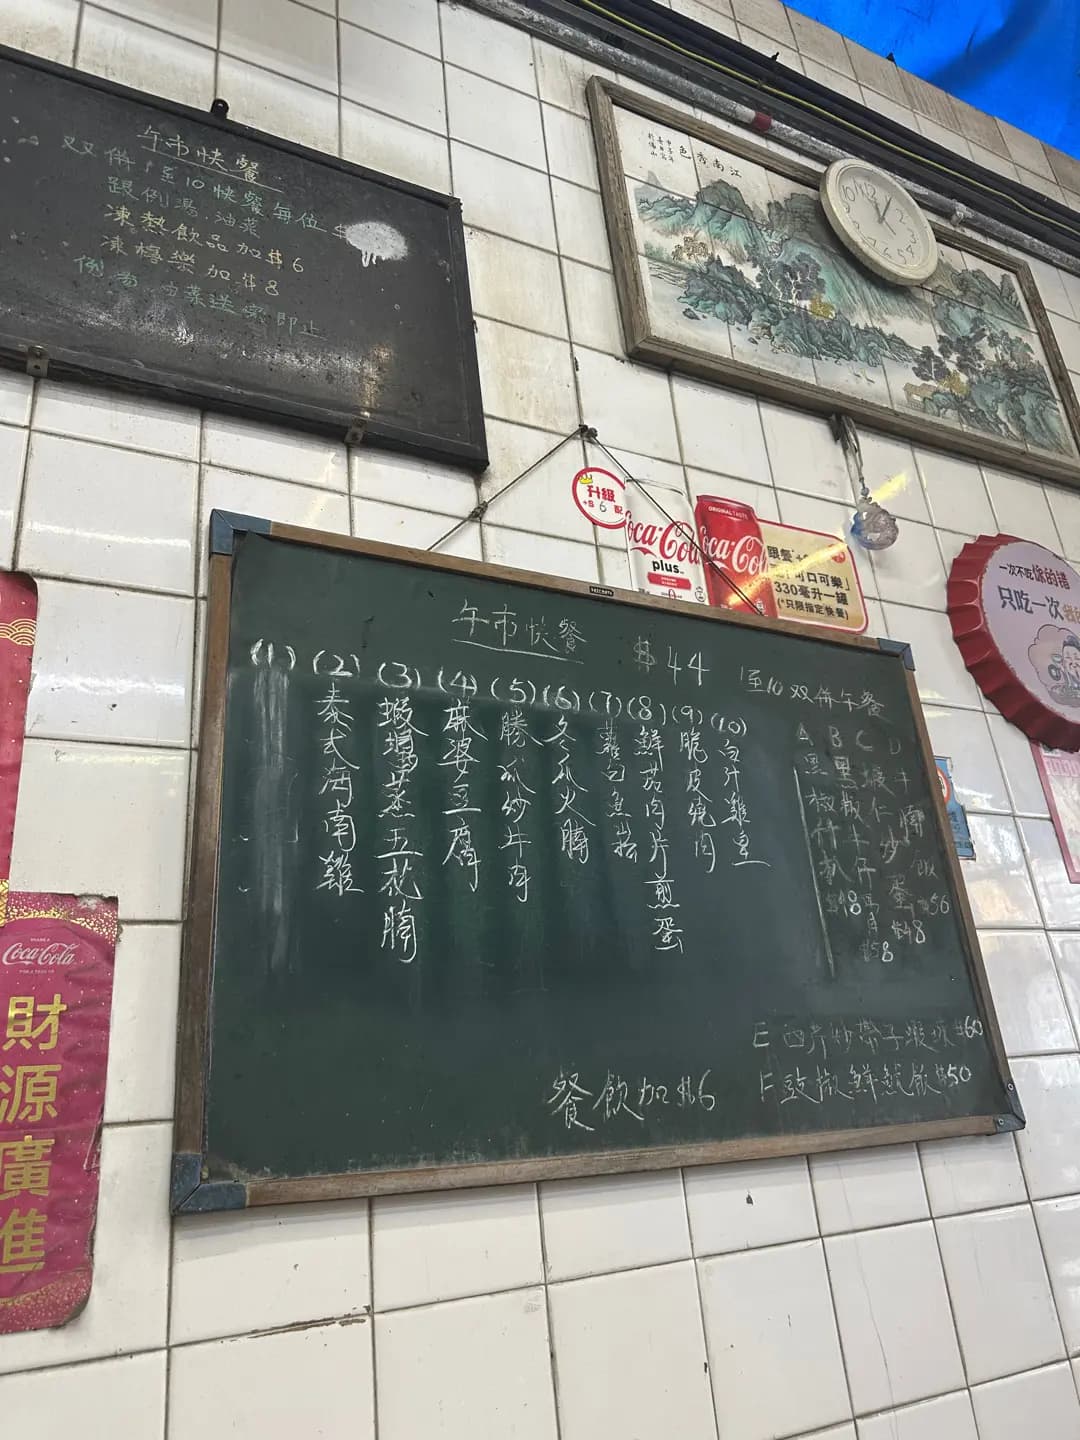 午市快餐
双併1至10快餐每位$
跟例湯.油菜
凍熱飲品加$6
凍檸樂加$8
例湯 油菜送完即止
江南秀色
12
升級
+$6配
Coca-Cola
plus
ORIGINAL TASTE
Coca-Cola
跟餐
可口可樂」
330毫升一罐
(*只限指定快餐)
一次不吃你的錯
只吃一次
午市快餐 $44
(1)
(2)泰式海南雞
(3)蝦醬蒸五花腩
(4)麻婆豆腐
(5)勝瓜炒牛肉
(6)冬瓜火腩
(7)
(8)鮮菇肉片煎蛋
(9)脆皮燒肉
(10)白汁雞皇
1至10双併午餐
A黑椒什扒$48
B黑椒牛仔骨$58
C蝦仁炒蛋$48
D牛腩飯$56
E西芹炒帶子蝦球$60
F豉椒鮮魷飯$50
餐飲加$6
Coca-Cola
財源廣進